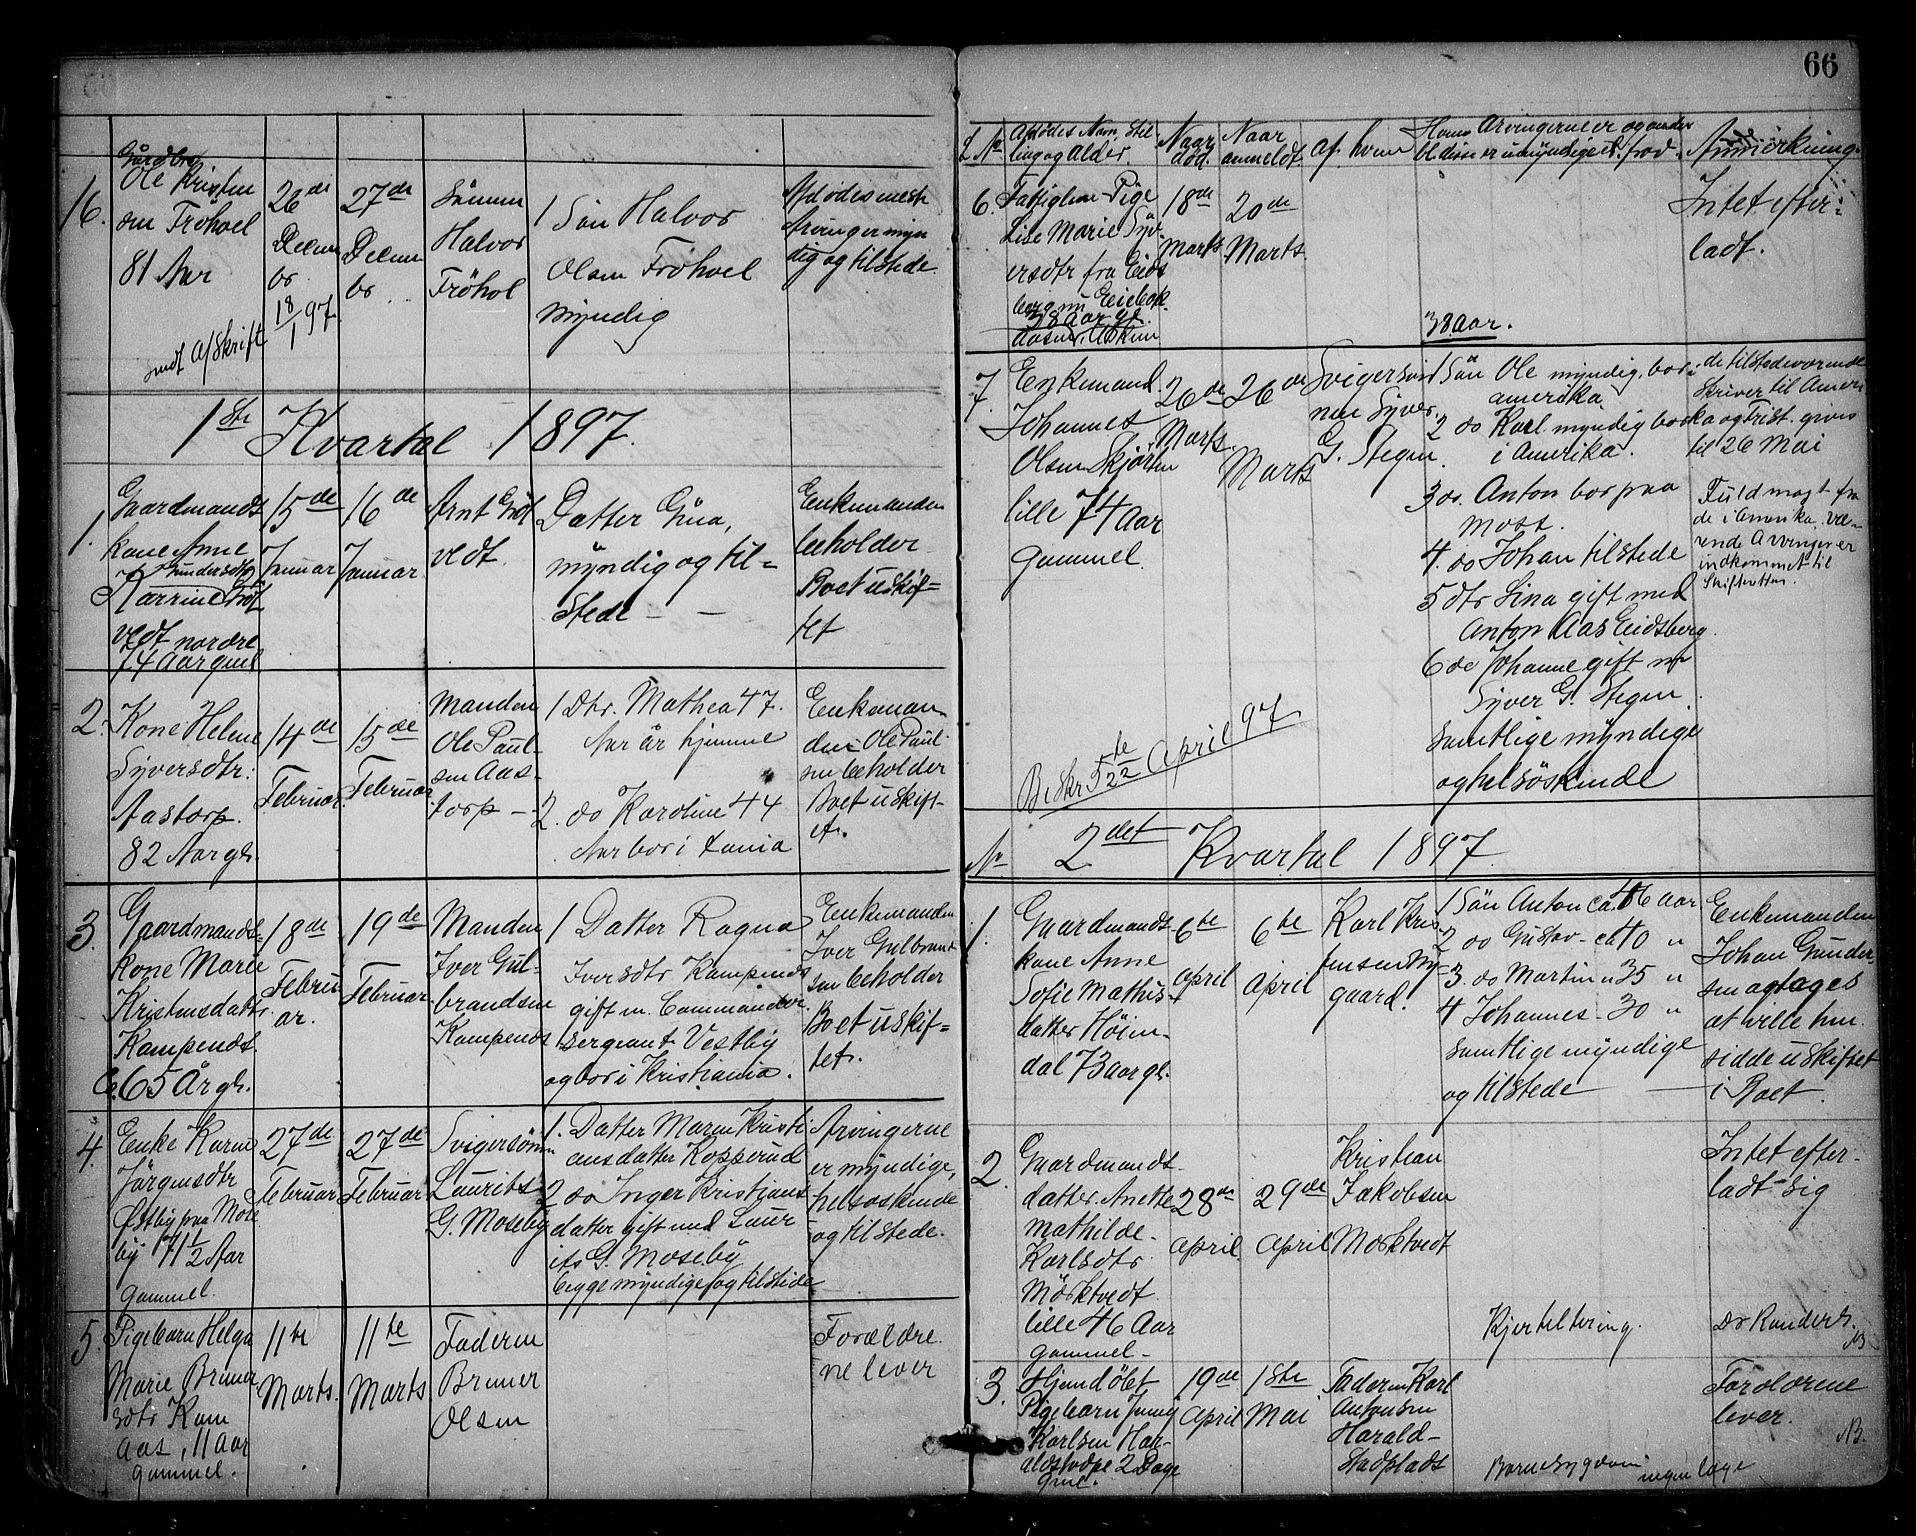 66
Gårdbr.
16. Ole Kristen
sen Fröhoel
81 Aar
sendt Afskrift
26de
Decem
br
18/1 97.
27de
Decem
br
Sönnen
Halvor
Fröhol
1 Sön Halvor
Olsen Fröhoel
myndig
Afdödes mest
Arvinger myn
dig og tilstede
1ste Kvartal 1897.
1. Gaardmands
kone Anne
Gundersdtr
Karrine Gröt
vedt nordre
74 Aar gml
15de
Januar
16de
Januar
Arnt Gröt
vedt.
Datter Gina,
myndig og til-
stede
Enkemanden
beholder
Boet uskif-
tet
2. Kone Helene
Syversdtr.
Aastorp.
82 Aar gl.
14de
Februar
15de
Februar
Manden
Ole Paul-
sen Aas-
torp
1 Dtr. Mathea 47.
Aar är hjemme
2. do Karoline 44
Aar bor i
Enkeman
den Ole Paul-
sen beholder
Boet uskift-
et.
3. Gaardmands-
kone Marie
Kristensdatr.
Kampends
65 År gl.
18de
Febru
ar.
19de
Februar
Manden
Iver Gul-
brandsen
Kampends
1 Datter Ragna
Iversdtr Kampends
gift m. Commandeer
sergeant Vestby
og bor i Kristiania.
Enkemanden
Iver Gulbrand
sen beholder
Boet uskif-
tet.
4. Enke Karen
Jörgensdtr
Østby paa Mose
by 71 1/2 Aar
gammel.
27de
Februar
27de
Februar
Svigersönn
Laurits
G. Moseby
1. Datter Maren Kristi
ansdatter Kopperud
2 do Inger Kristians
datter gift med Laur
its G. Moseby
begge myndige og tilstede
Arvingerne
er myndige,
helsøskende
og tilstede.
5. Pigebarn Helga
Marie Bruner
sdtr Kam
Aas, 11 Aar
gammel.
11te
Marts.
11te
Marts
Faderen
Bruner
Olsen
Forældre
ne lever
No Afdødes Navn, Stil
ling og Alder.
Naar
död.
Naar
anmeldt
Af hvem
Hvem Arvingerne er og under
Anmerkning.
6. Fattiglem Pige
Lise Marie Syv
ersdtr fra Eids
berg nu Eidebak
38 Aar gl.
Aasen, Askim
18de
Marts
20de
Marts
38 Aar.
Intet efter-
ladt.
7. Enkemand
Johannes
Olsen Skjörten
lille 74 Aar
gammel.
26de
Marts.
26de
Marts
Svigersön
nen Syver
G. Stegen
1 Sön Ole myndig, bor i
amerika.
2 do Karl myndig bor
i Amerika.
3 do. Anton bor paa
Moss.
4. do Johan tilstede
5 dtr Lina gift med
Anton Aas Eidsberg.
6 do Johanne gift m
Syver G. Stegen
Samtlige myndige
og helsöskende
de tilstedeværende
skriver til Ameri
ka og Frist gives
til 26 Mai
Fuldmagt fra
de i Amerika væ-
rende Arvinger er
indkommet til
Skifteretten.
Beskr 5te/22 April 97
No 2det Kvartal 1897.
1. Gaardmands-
kone Anne
Sofie Mathis-
datter Höien-
dal 73 aar gl.
6te
April
6te
April
Karl Kris
tensen Ny-
gaard.
1 Sön Anton ca. 46 aar
2 do Gustav - ca 40 "
3. do Martin " 35 "
4 Johannes - 30 "
samtlige myndige
og tilstede
Enkemanden
Johan Gunder-
sen agtages
at ville hen
sidde uskiftet
i Boet.
2. Gaardmands-
datter Anette
Mathilde
Karlsdtr
Mörktvedt
lille 46 Aar
gammel-
28de
April
29de
April
Kristian
Jakobsen
Mörktvedt
Kjerteltering.
Intet efter-
ladt sig
Dr Randers.
NB
3. Hjemdöbt
Pigebarn Jenny
Karlsen Har-
aldstvdpe 2 Dage
Gml.
19de
April
1ste
Mai
Faderen Karl
Antonsen
Harald-
Stadplads
Barnesygdom ingen læge
Forældrene
lever.
NB.